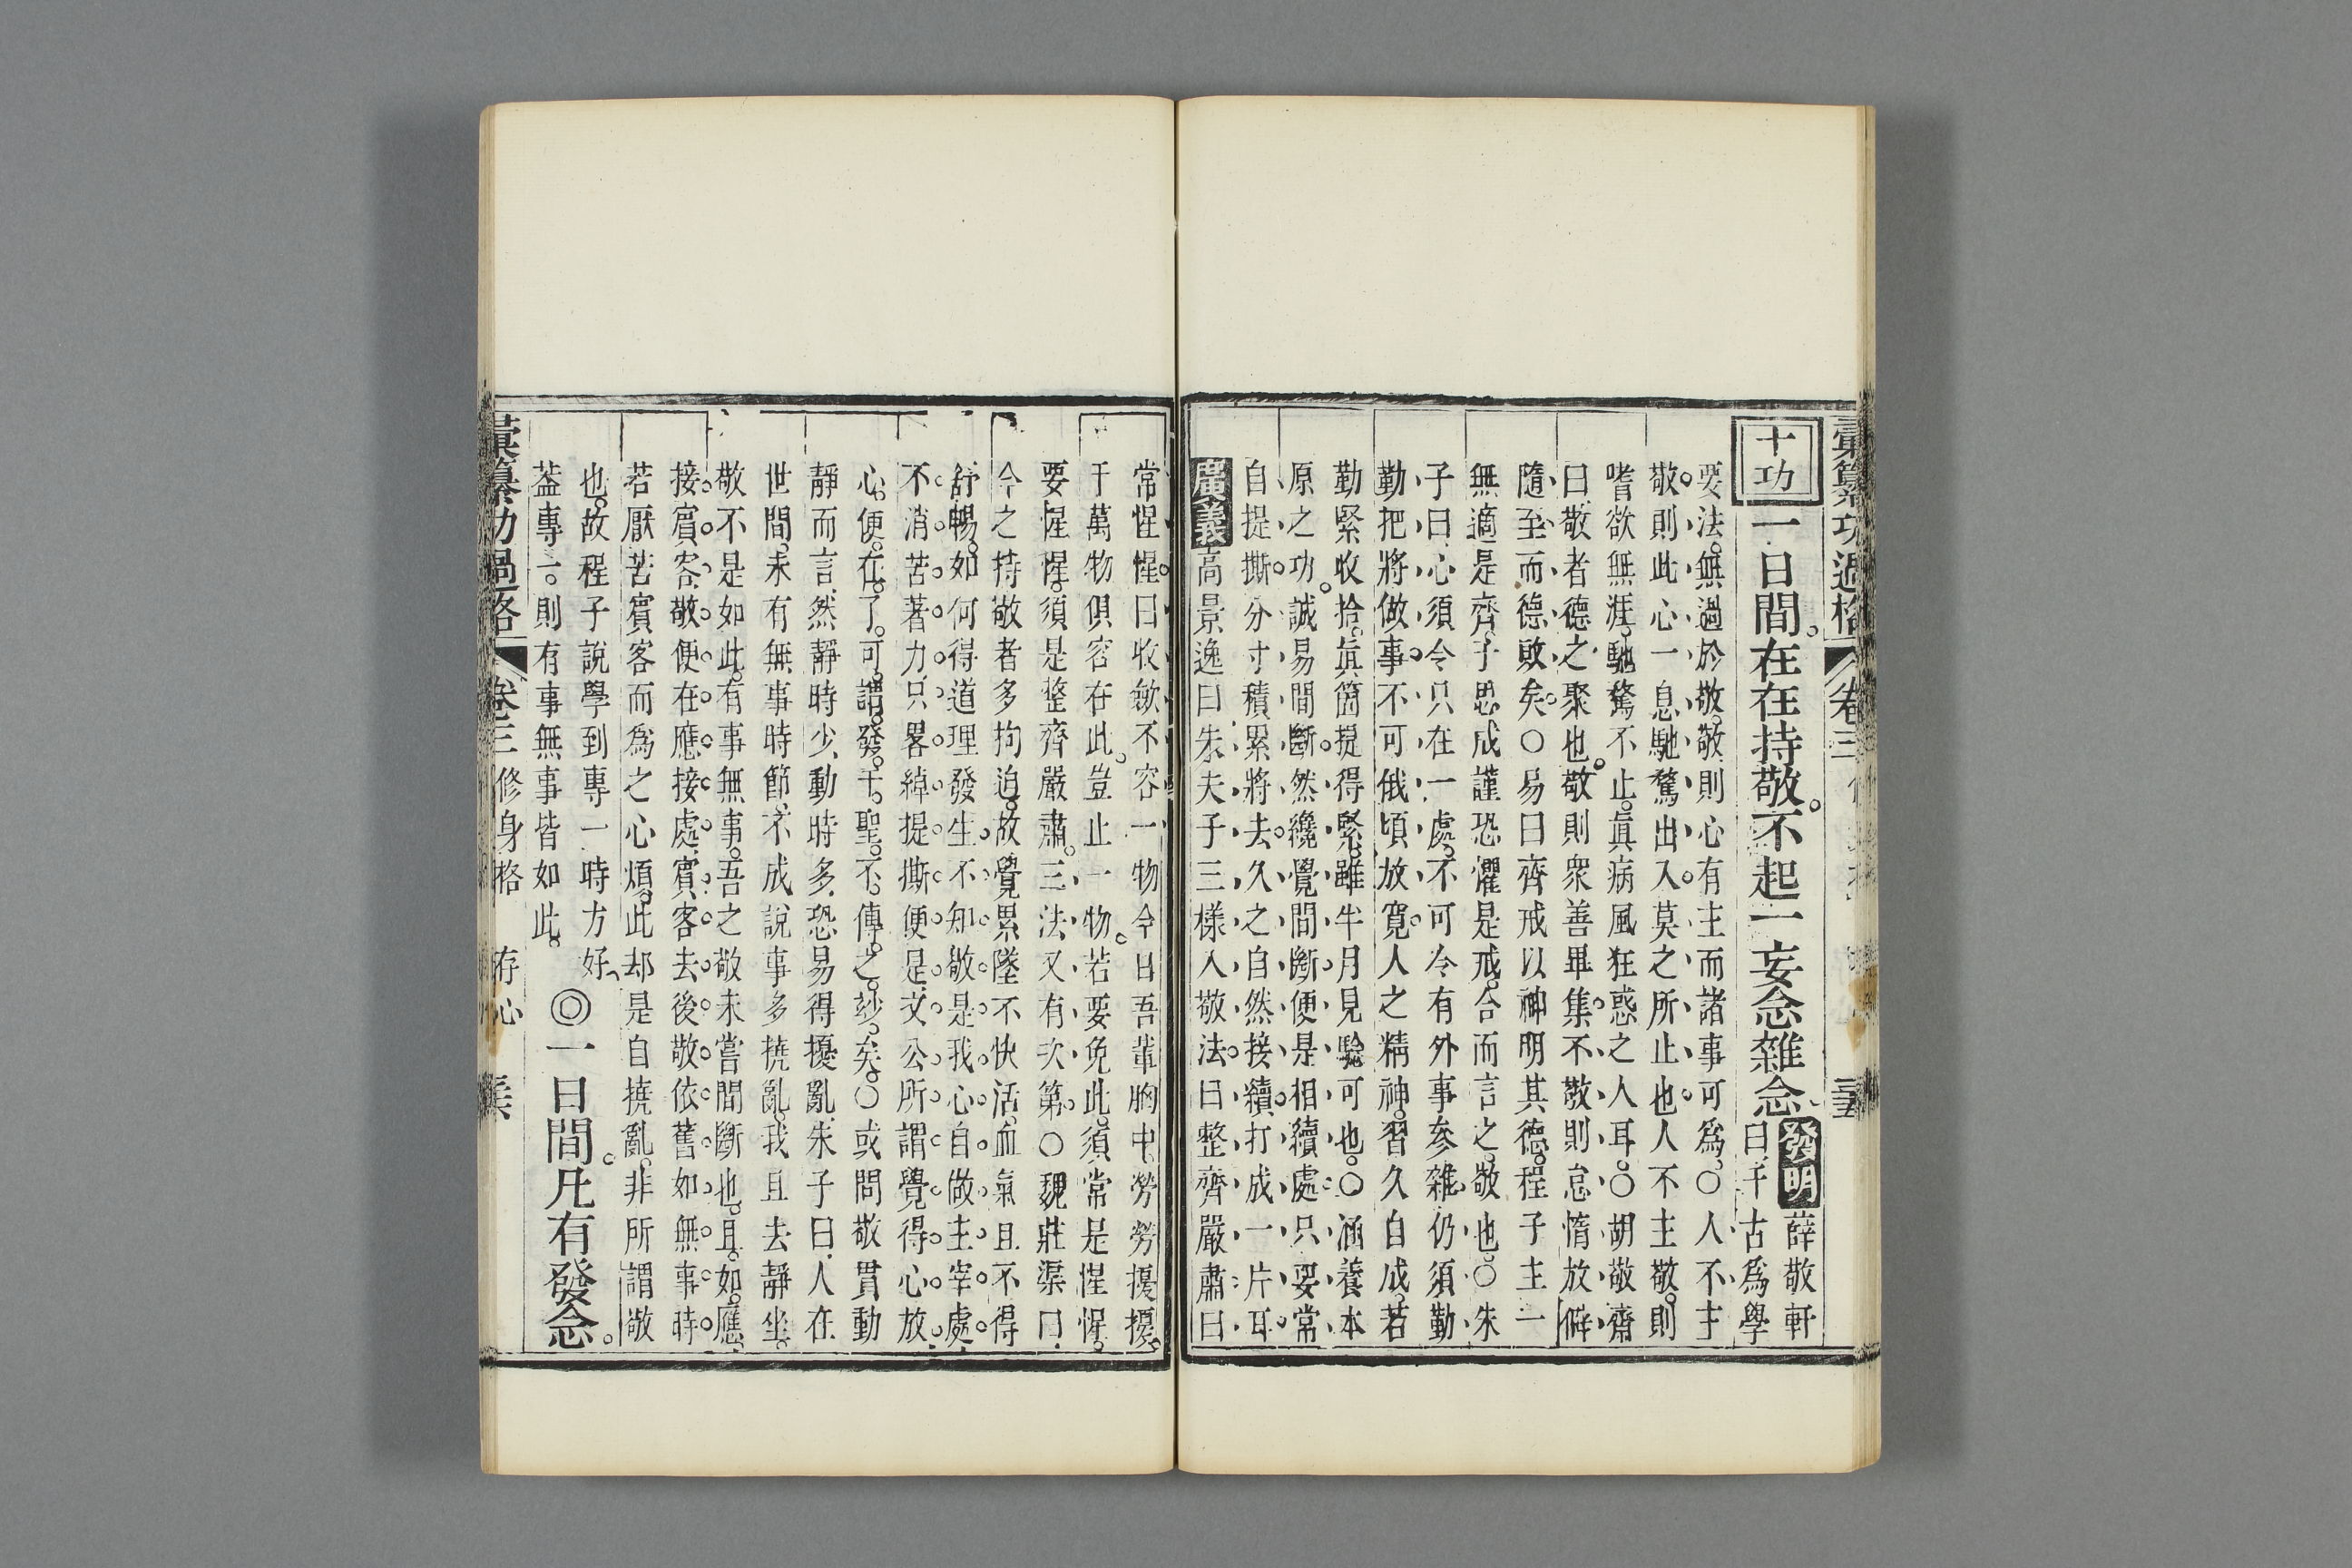 彙纂功過格 卷三 三五
十功 一日間。在在持敬。不起一妄念雜念 發明 薛敬軒
曰千古爲學
要法。無過於敬。敬則心有主而諸事可爲。○人不主
敬。則此心一息馳騖出入莫之所止也。人不主敬。則
嗜欲無涯。馳騖不止。眞病風狂惑之人耳。○胡敬齋
曰敬者德之聚也。敬則衆善畢集。不敬則怠惰放僻
隨至而德敗矣。○易曰齊戒以神明其德。程子主一
無適是齊。子思戒謹恐懼是戒。合而言之敬也。○朱
子曰心須令只在一處。不可令有外事參雜。仍須勤
勤把將做事。不可俄頃放寬。人之精神。習久自成。若
勤緊收拾。眞箇提得緊。雖半月見驗可也。○涵養本
原之功。誠易間斷。然纔覺間斷便是相續處。只要常
自提撕。分寸積累將去。久之自然接續。打成一片耳。
廣義 高景逸曰朱夫子三樣入敬法。曰整齊嚴肅曰
常惺惺。曰收斂不容一物今日吾輩胸中。勞勞擾擾。
千萬物俱容在此。豈止一物。若要免此。須常是惺惺。
要惺惺。須是整齊嚴肅。三法又有次第。○魏莊渠曰
今之持敬者多拘迫。故覺累墜不快活。血氣且不得
舒暢。如何得道理發生。不知敬是我心自做主宰處。
不消苦著力。只畧綽提撕便是。文公所謂覺得心放。
心便在了。可謂發千聖不傳之妙矣。○或問敬貫動
靜而言。然靜時少動時多。恐易得擾亂。朱子曰。人在
世間。未有無事時節。不成說事多撓亂。我且去靜坐。
敬不是如此。有事無事。吾之敬未嘗間斷也。且如應
接賓客。敬便在應接處。賓客去後。敬依舊如無事時。
若厭苦賓客而爲之心煩。此却是自撓亂。非所謂敬
也。故程子說學到專一時方好。
葢專一。則有事無事皆如此。
◎一日間。凡有發念。
彙纂功過格 卷三 修身格 存心